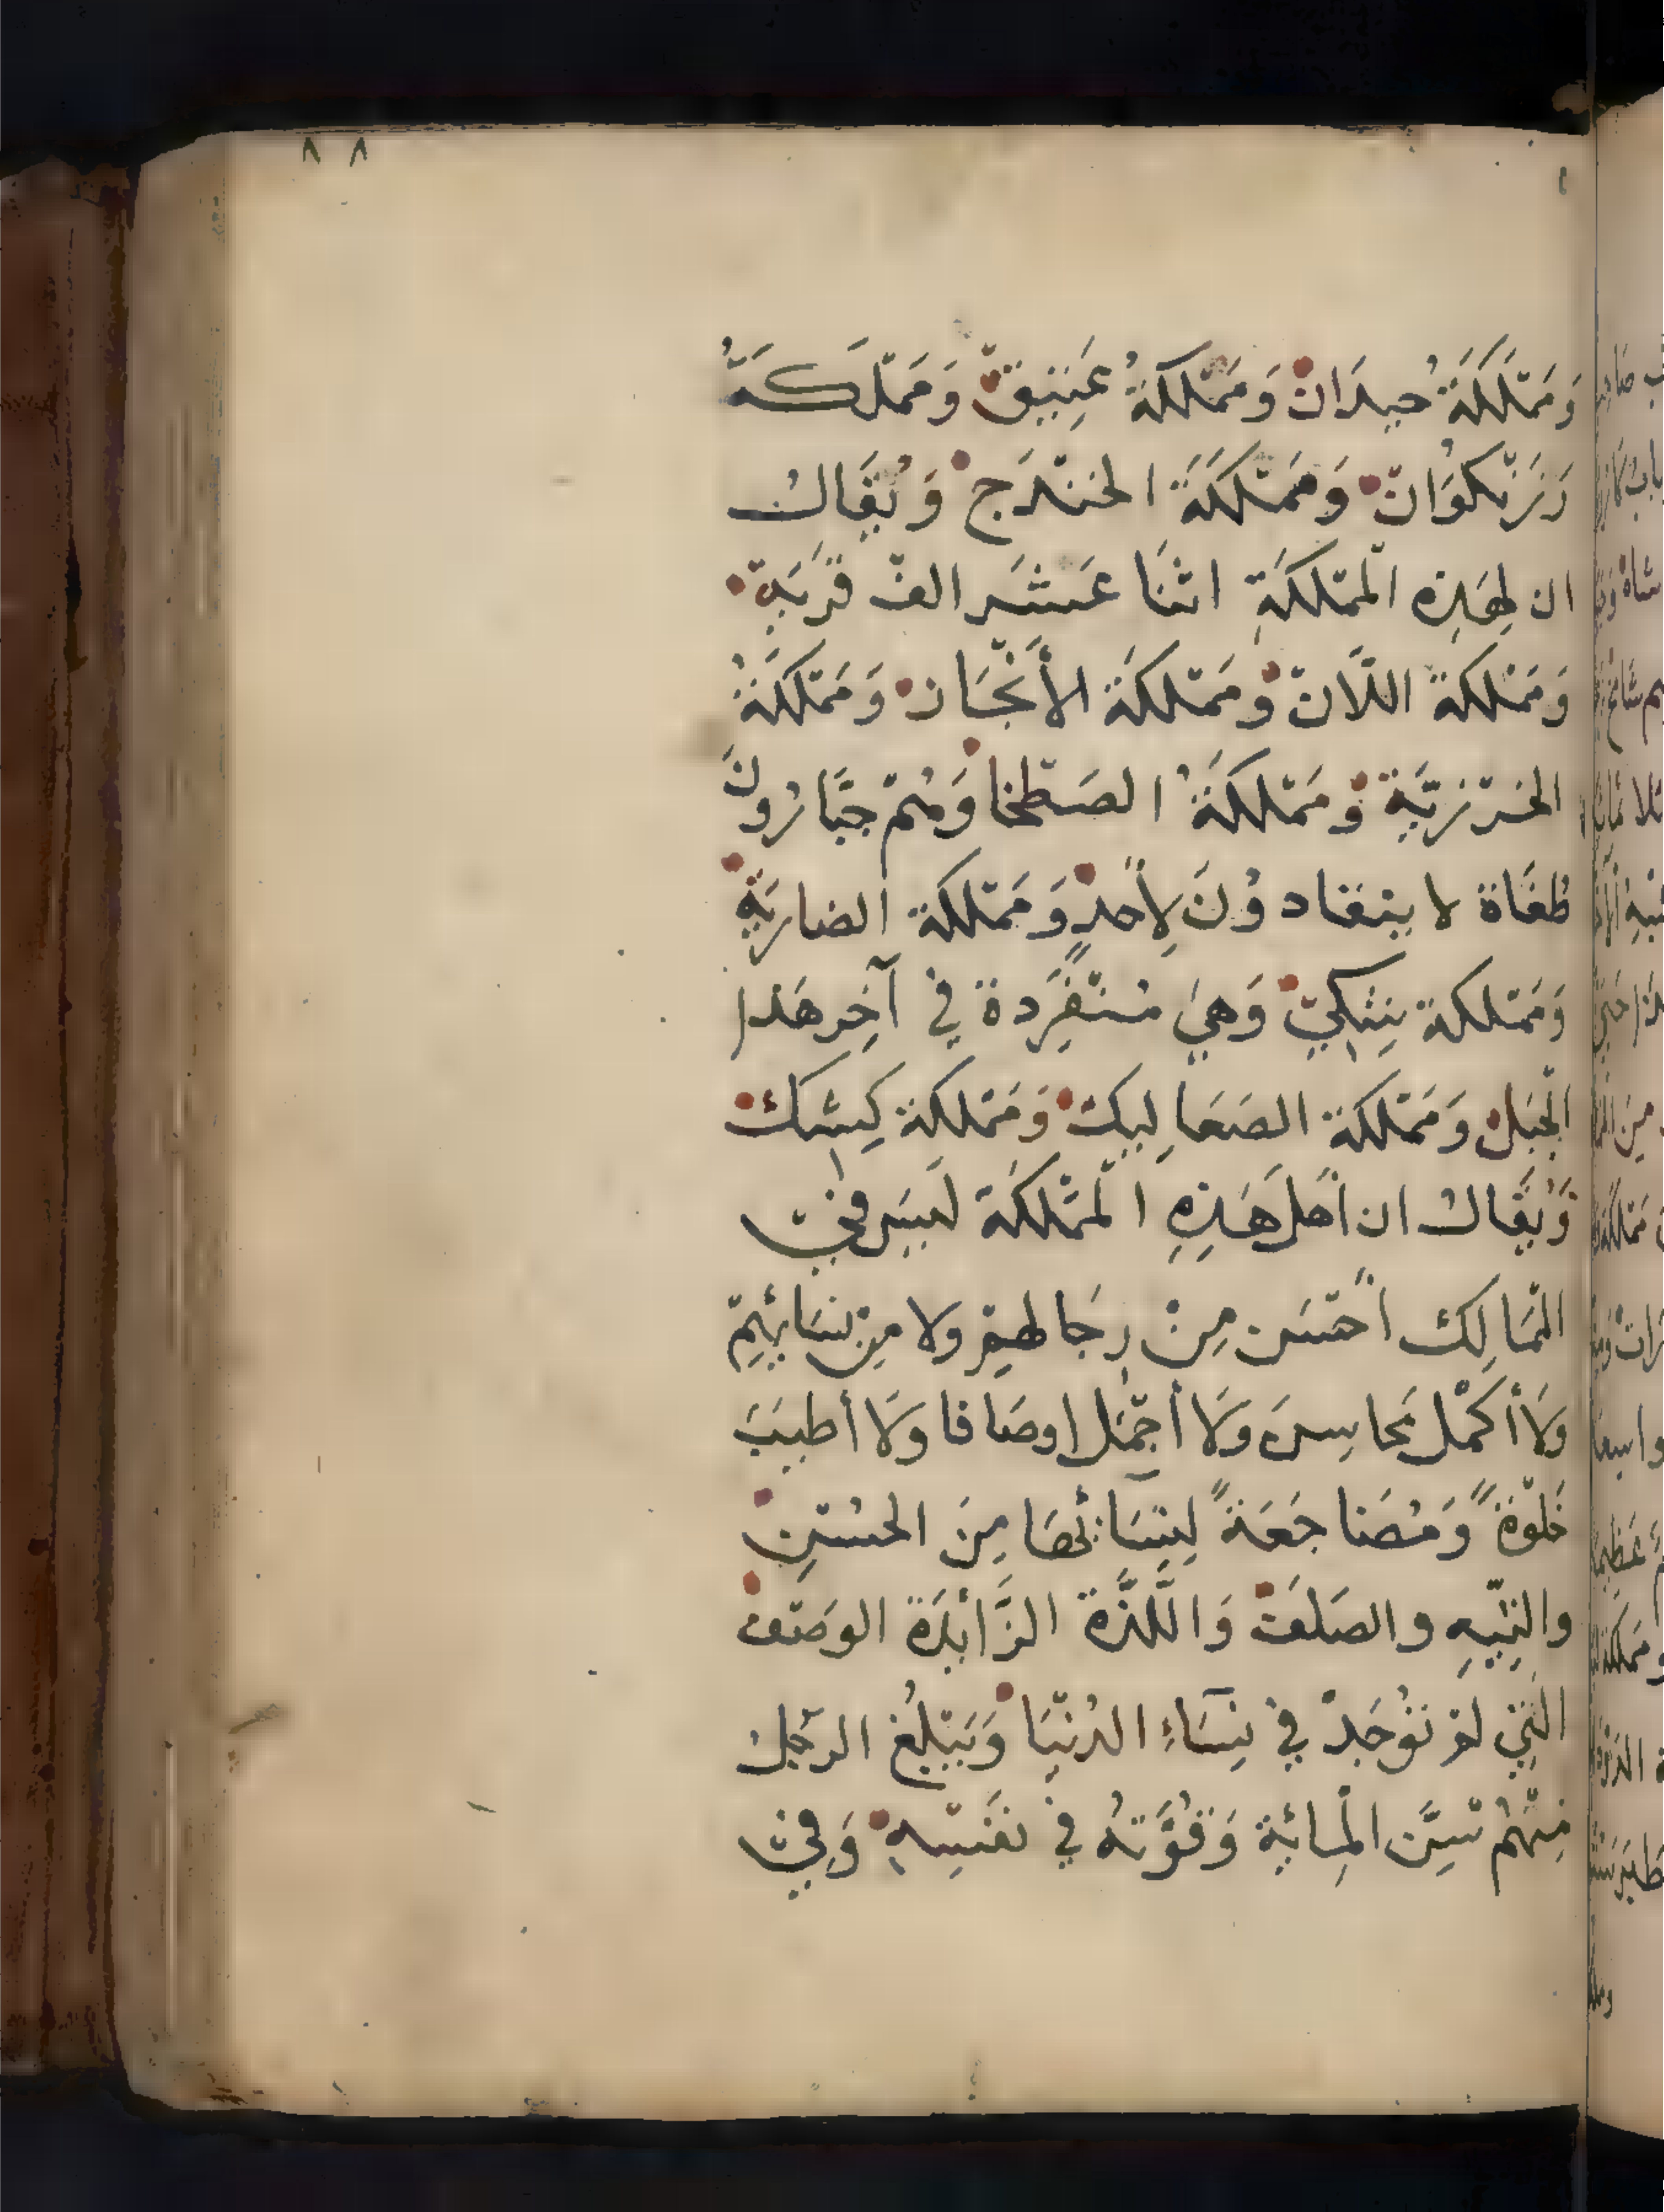 ٨٨
وَمَمْلَكَةُ حيدَان وَمَمْلَكَةُ عَنِيق وَمَمْلَكَةُ
زَرَنْكوَان وَمَمْلَكَة الخندَج وَيُقَال
ان لهَذِه المْمَلكَةِ اثنَا عَشَر الف قَريَةٍ
وَمَمْلكة اللّان وَمَمْلكَة الأَنْجَان وَمَمْلَكَةُ
الخزريَّة وَمَمْلَكَةُ الصَطخا وَهُمْ جبَّارُونَ
طُغَاة لا ينقادوُنَ لِأحدٍ وَمَمْلكة الضاريَةِ
وَمَمْلكة بِثكِي وَهيَ مُنْفَرِدة في آخِر هَذا
الجْبَل وَمَمْلكة الصَعَاليك وَمَمْلكة كِشك
وَيُقَال ان أهل هَذِهِ المْمَلكَة ليسَ في
المْمَالِك أحْسَن مِنْ رِجَالهمْ ولا مِن نِسَائِهِمْ
وَلَا أكْمل مَحَاسِن وَلَا أجْمَل اوصَافا وَلَا أطيَبَ
خَلْوَةً وَمُضَاجَعَةً لِنِسَائهَا مِنَ الحُسْنِ
والتِّيهِ والصَلَف وَاللَّذَّة الزَّائدَة الوَصْف
التِي لمْ تُوْجَدْ في نِسَاءِ الدُنْيَا وَيَبْلُغ الرَجُلُ
مِنْهُمْ سِنَّ المْائِة وَقُوَّتُهُ في نَفْسِهِ وَفي